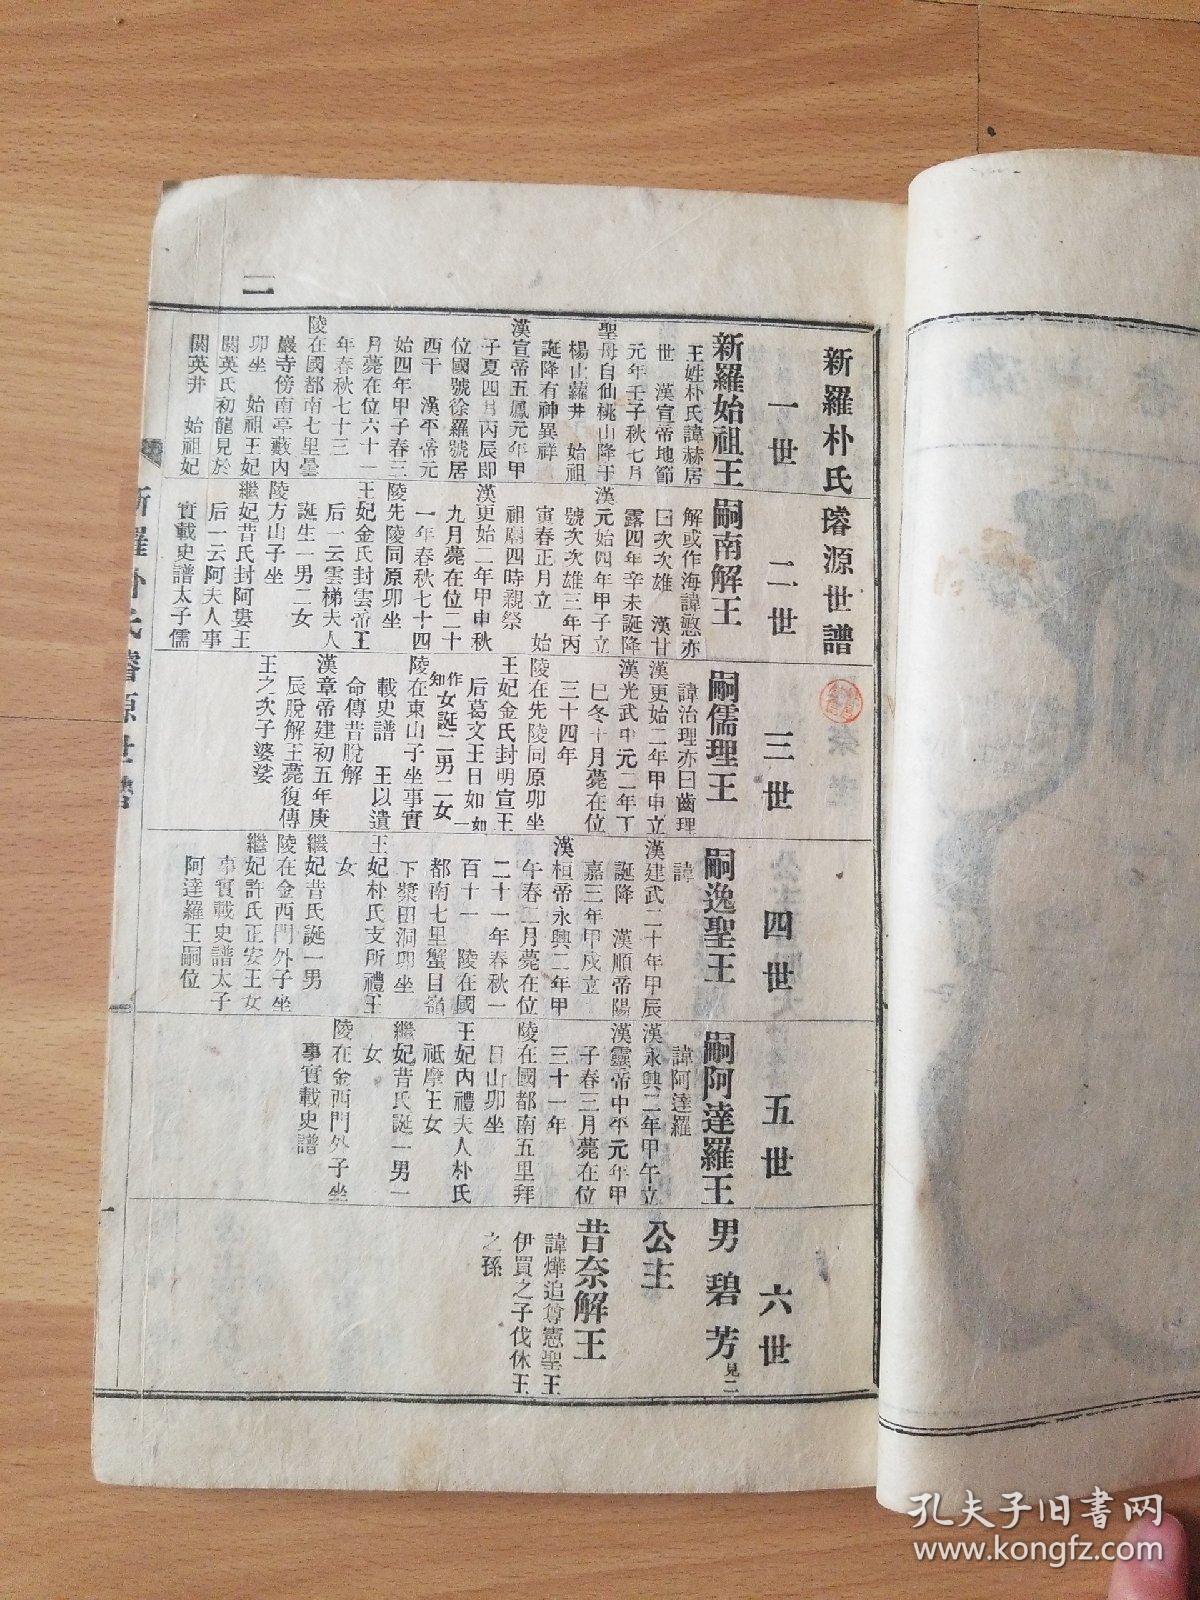 新羅朴氏璿源世譜
一世
新羅始祖王
王姓朴氏諱赫居
世　漢宣帝地節
元年壬子秋七月
聖母自仙桃山降于
楊山蘿井　始祖
誕降有神異祥
漢宣帝五鳳元年甲
子夏四月丙辰即
位國號徐羅號居
西干　漢平帝元
始四年甲子春三
月薨在位六十一
年春秋七十三
陵在國都南七里曇
巖寺傍南亭藪內
卯坐　始祖王妃
閼英氏初龍見於
閼英井　始祖妃
二世
嗣南解王
解或作海諱慜亦
曰次次雄　漢甘
露四年辛未誕降
漢元始四年甲子立
號次次雄三年丙
寅春正月立　始
祖廟四時親祭
漢更始二年甲申秋
九月薨在位二十
一年春秋七十四
陵先陵同原卯坐
王妃金氏封雲帝王
后一云雲梯夫人
誕生一男二女
陵方山子坐
繼妃昔氏封阿婁王
后一云阿夫人事
實載史譜太子儒
三世
嗣儒理王
諱治理亦曰齒理
漢更始二年甲申立
漢光武中元二年丁
巳冬十月薨在位
三十四年
陵在先陵同原卯坐
王妃金氏封明宣王
后葛文王日如一
作如知女誕二男二女
陵在東山子坐事實
載史譜　王以遺
命傳昔脫解
漢章帝建初五年庚
辰脫解王薨復傳
王之次子婆娑
四世
嗣逸聖王
諱
漢建武二十年甲辰
誕降　漢順帝陽
嘉三年甲戌立
漢桓帝永興二年甲
午春二月薨在位
二十一年春秋一
百十一　陵在國
都南七里蟹目嶺
下槳田洞卯坐
王妃朴氏支所禮王
女
繼妃昔氏誕一男
陵在金西門外子坐
繼妃許氏正安王女
事實載史譜太子
阿達羅王嗣位
五世
嗣阿達羅王
諱阿達羅
漢永興二年甲午立
漢靈帝中平元年甲
子春三月薨在位
三十一年
陵在國都南五里拜
日山卯坐
王妃內禮夫人朴氏
祗摩王女
繼妃昔氏誕一男一
女
陵在金西門外子坐
事實載史譜
六世
男碧芳見二
公主
昔奈解王
諱燁追尊憲聖王
伊買之子伐休王
之孫
新羅朴氏璿源世譜
一
二
孔夫子旧书网
www.kongfz.com